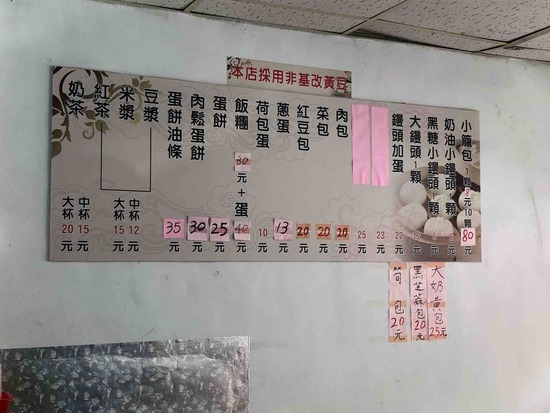 本店採用非基改黃豆
小籠包 1顆8元10顆80元
奶油小鏝頭1顆 6元
黑糖小鏝頭1顆 6元
大鏝頭1顆 12元
鏝頭加蛋 22元
23元
25元
肉包 20元
菜包 20元
紅豆包 20元
蔥蛋 13元
荷包蛋 10元
飯糰 30元+蛋 40元
蛋餅 25元
肉鬆蛋餅 30元
蛋餅油條 35元
豆漿
米漿
中杯12元
大杯15元
紅茶
奶茶
中杯15元
大杯20元
大奶黃包25元
黑芝麻包20元
筍包20元